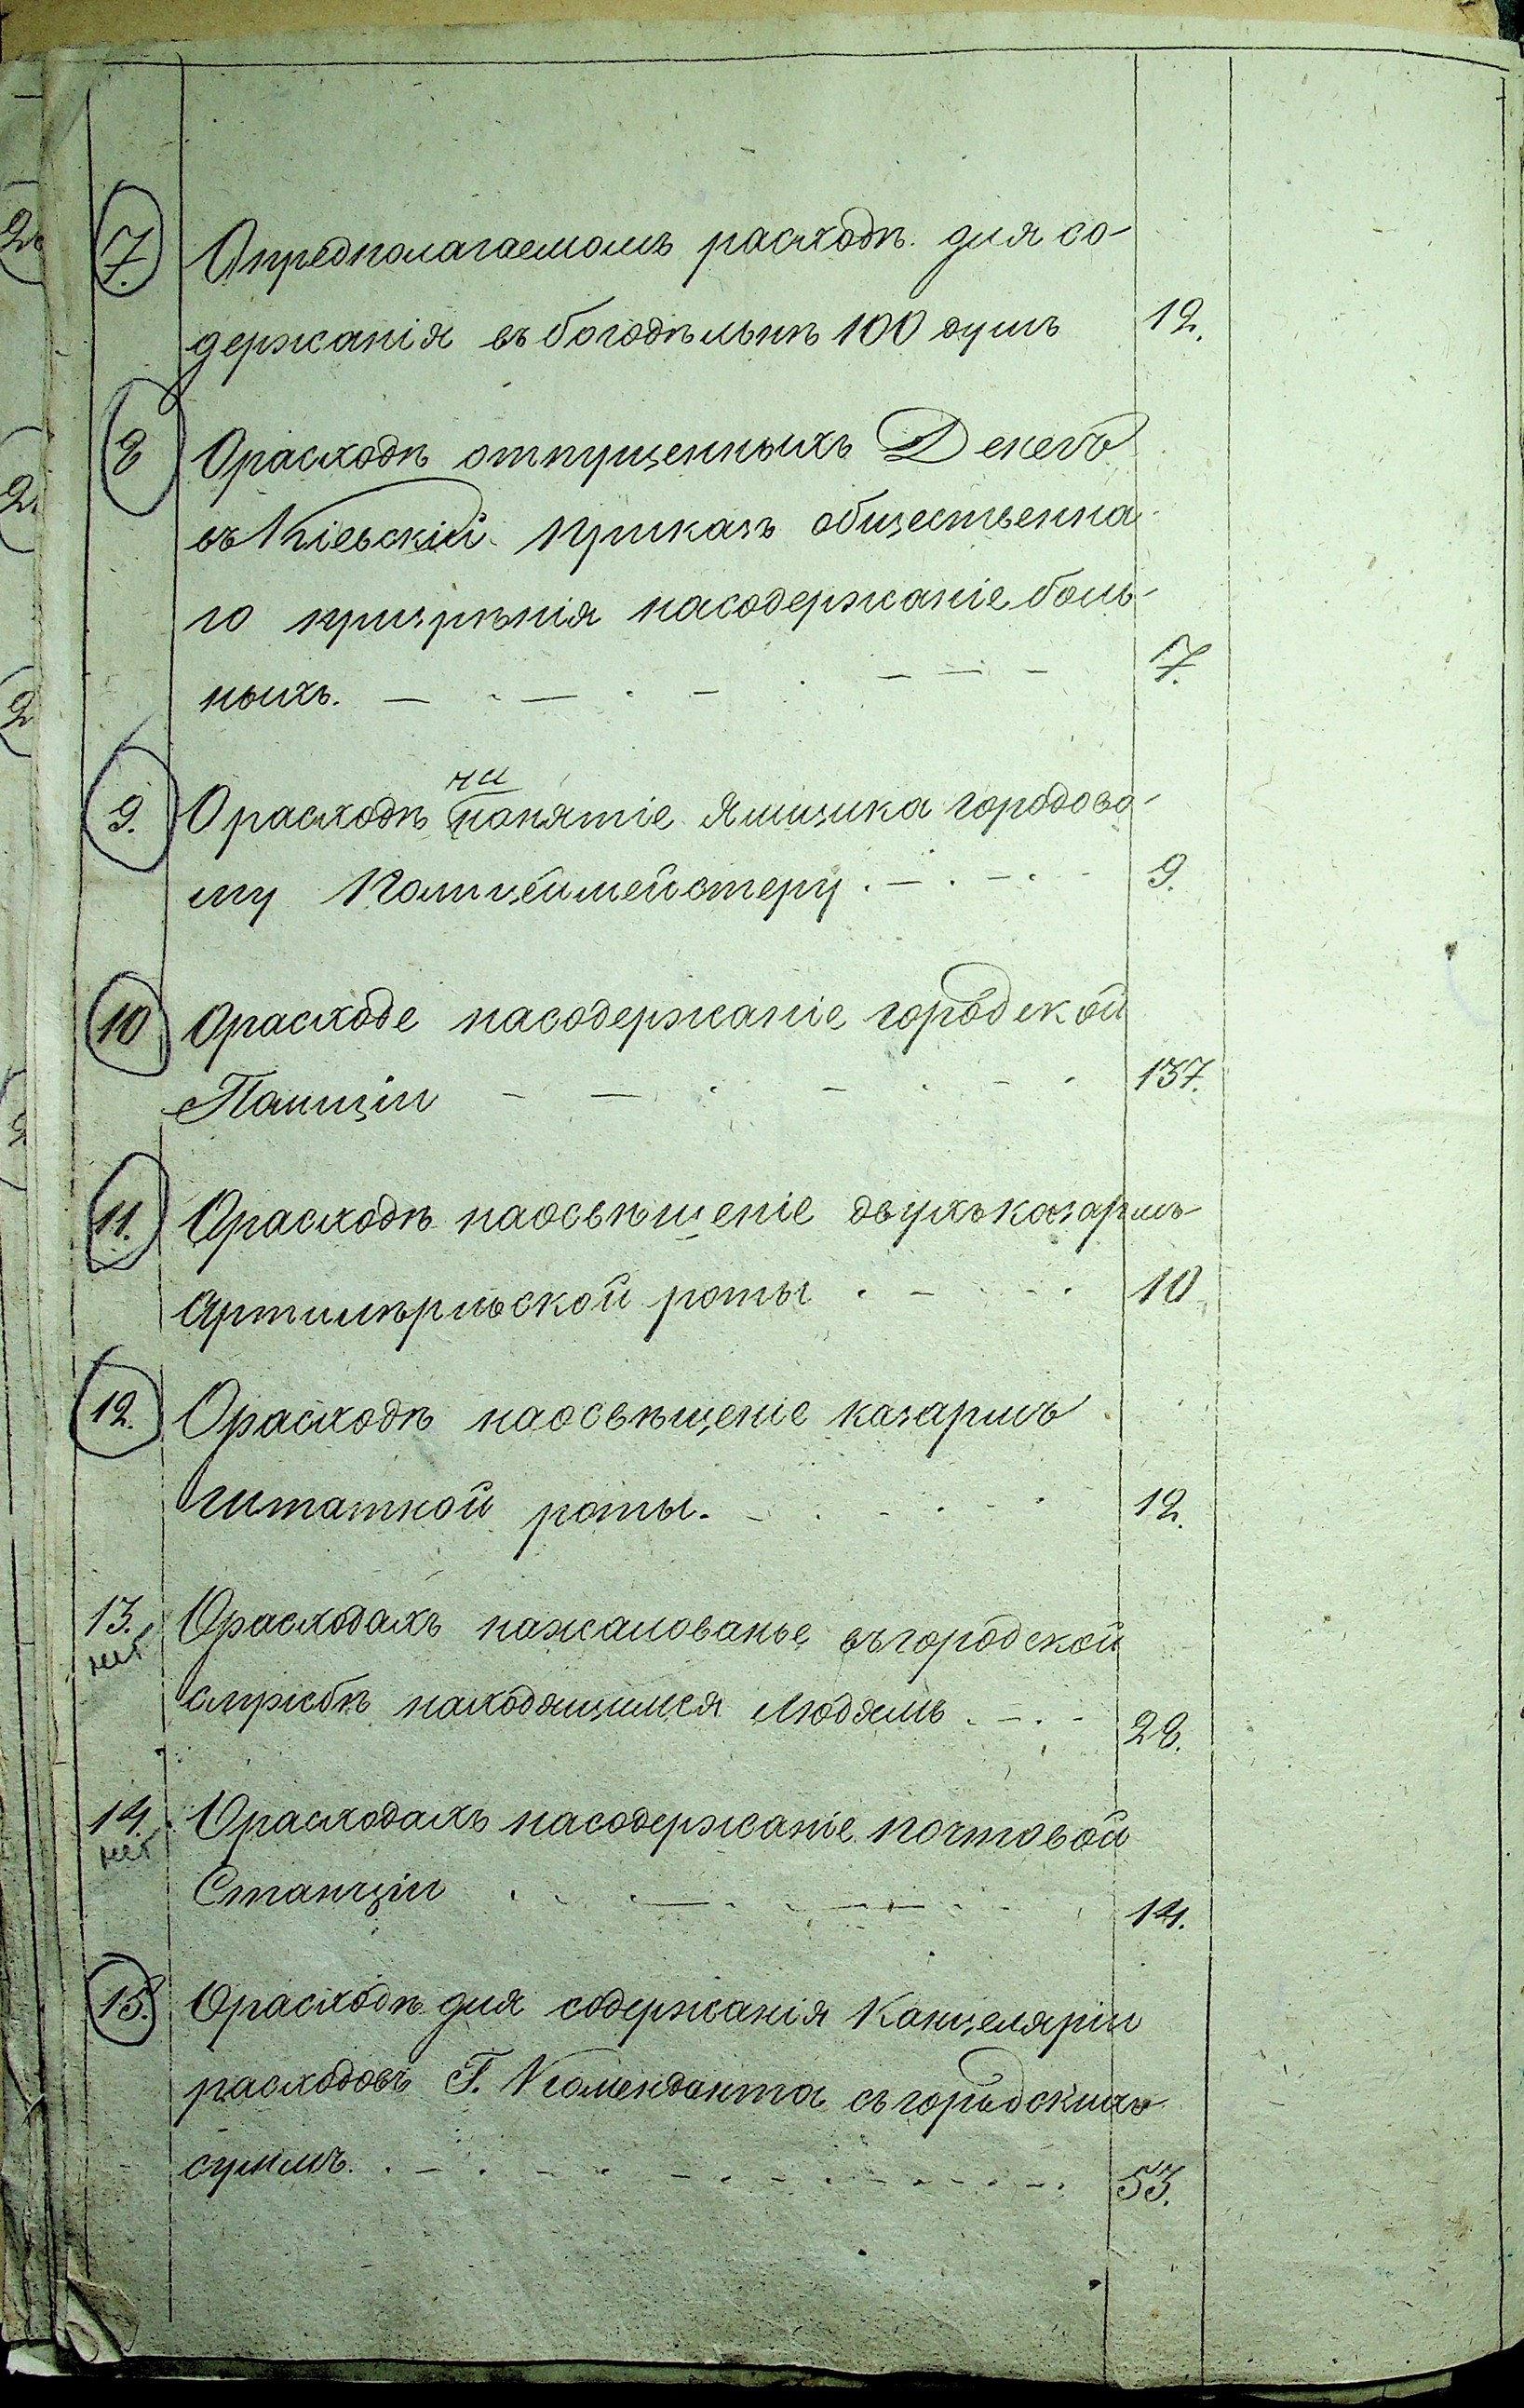 7. Опредполагаемомъ расходѣ для со-
держанія въ богодѣльнѣ 100 душъ 12.
8 Орасходѣ отпущенныхъ Денегъ
въ Кіевскій Приказъ общественна
го призрѣнія насодержаніе боль-
ныхъ. 7.
на
9. Орасходѣ нанятіе Ямщика городово-
му Полицеймейстеру 9.
10 Орасходе насодержаніе городской
Полиціи 137.
11. Орасходѣ наосвѣщеніе двухъ казармъ
Артилѣрійской роты 10
12. Орасходѣ наосвѣщеніе казармъ
штатной роты. 12.
13. Орасходахъ нажалованье въгородской
нет
службѣ находящимся Людямъ 28.
14. Орасходахъ насодержаніе почтовой
нет
Станціи 14.
15. Орасходѣ для содержанія Канцеляріи
расходовъ Г. Коменданта съгородскихъ
суммъ. 53.